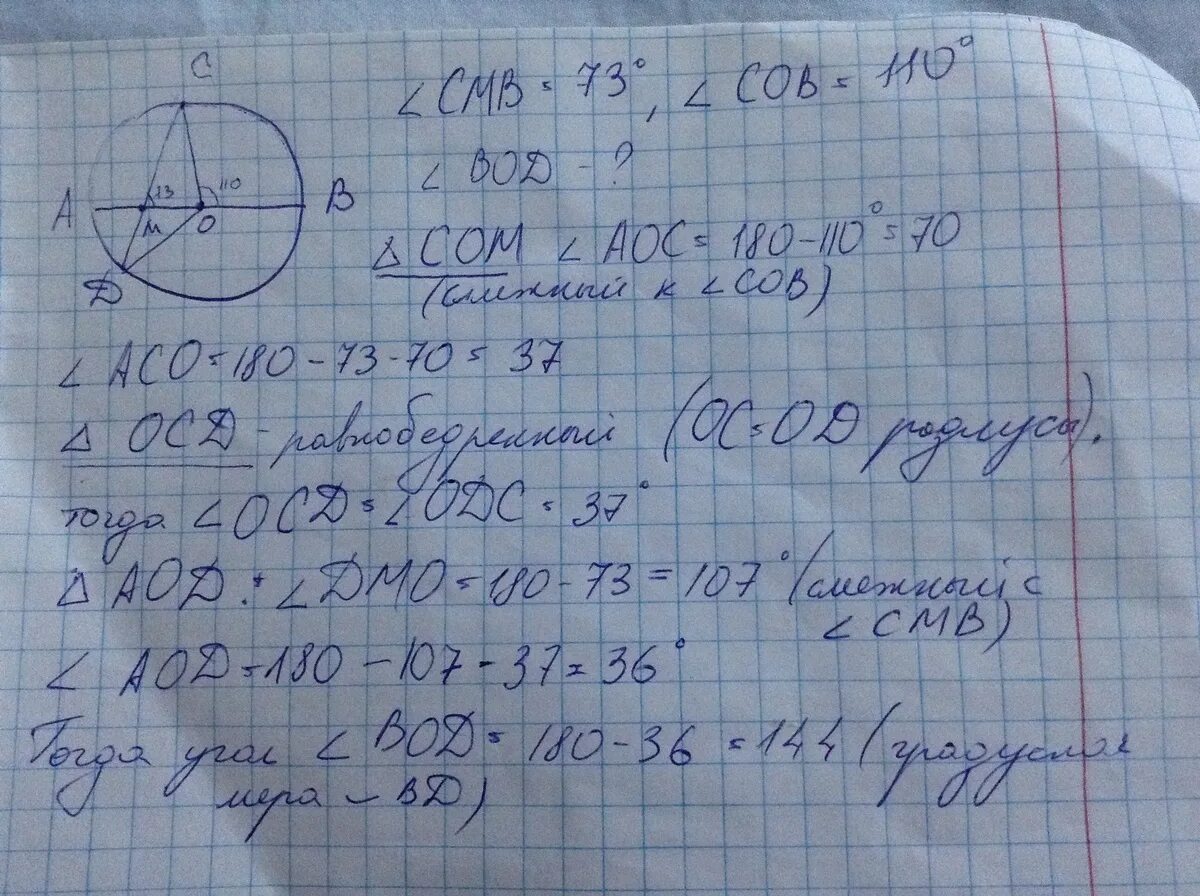 C
∠CMB = 73°, ∠COB = 110°
∠BOD - ?
A 73 110 B
M O
D
△ COM ∠AOC = 180-110° = 70
(смежный к ∠COB)
∠ACO = 180 - 73 - 70 = 37
△ OCD - равнобедренный (OC = OD радиусы).
тогда ∠OCD = ∠ODC = 37°
△ AOD : ∠DMO = 180 - 73 = 107° (смежный с
∠CMB)
∠AOD = 180 - 107 - 37 = 36°
Тогда угол ∠BOD = 180 - 36 = 144 (градусная
мера - BD)